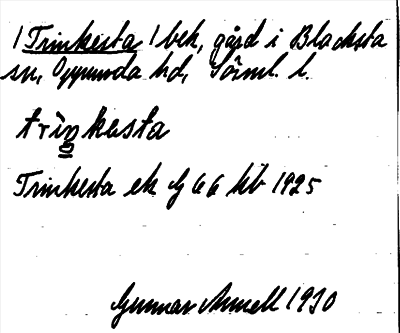 / Trinkesta / bek, gård i Blacksta
sn, Oppunda hd, Sörml. l.
trìŋkesta
Trinkesta ek G 66 kb 1925
Gunnar 1930